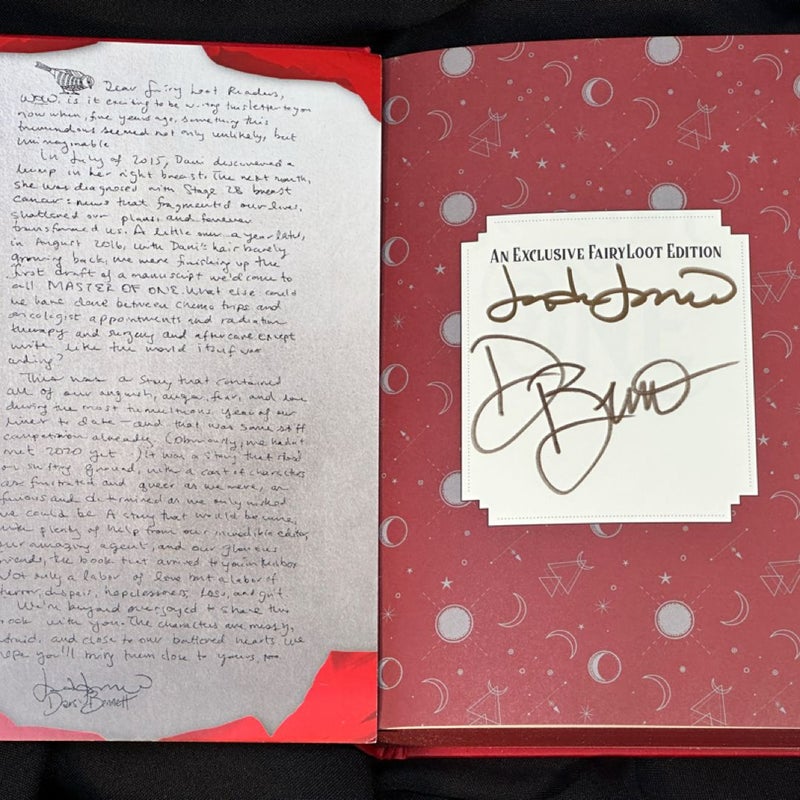 Dear Fairy Loot Readers,
WOW, is it exciting to be writing this letter to you
now when, five years ago, something this
tremendous seemed not only unlikely, but
unimaginable
In July of 2015, Dani discovered a
lump in her right breast. The next month,
she was diagnosed with Stage 2B breast
cancer: news that fragmented our lives,
shattered our plans, and forever
transformed us. A little over a year later,
in August 2016, with Dani's hair barely
growing back, we were finishing up the
first draft of a manuscript we'd come to
call MASTER OF ONE. What else could
we have done between chemo trips and
oncologist appointments and radiation
therapy and surgery and aftercare except
write like the world itself was
ending?
This was a story that contained
all of our anguish, anger, fear, and love
during the most tumultuous year of our
lives to date—and that was some stiff
competition already. (Obviously, we hadn't
met 2020 yet.) It was a story that
on shifting ground, with a cast of characters
as frustrated and queer as we were, as
furious and determined as we only wished
we could be. A story that would become,
with plenty of help from our incredible editor,
our amazing agent, and our glorious
friends, the book that arrived to you in this box
Not only a labor of love but a labor of
terror, despair, hopelessness, loss, and grit.
We're beyond overjoyed to share this
book with you. The characters are messy,
afraid, and close to our battered hearts. We
hope you'll bring them close to yours, too.
Dani Bennett
AN EXCLUSIVE FAIRYLOOT EDITION